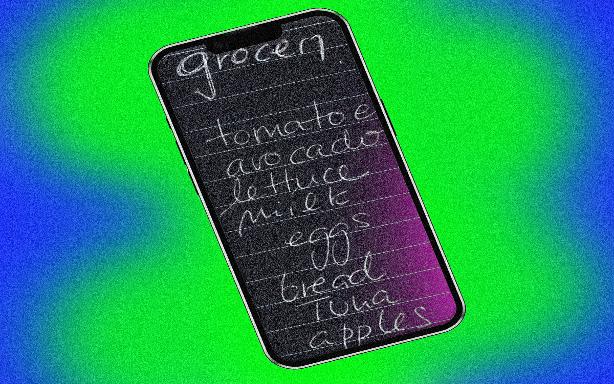 grocery
tomatoe
avocado
lettuce
milk
eggs
bread
tuna
apples